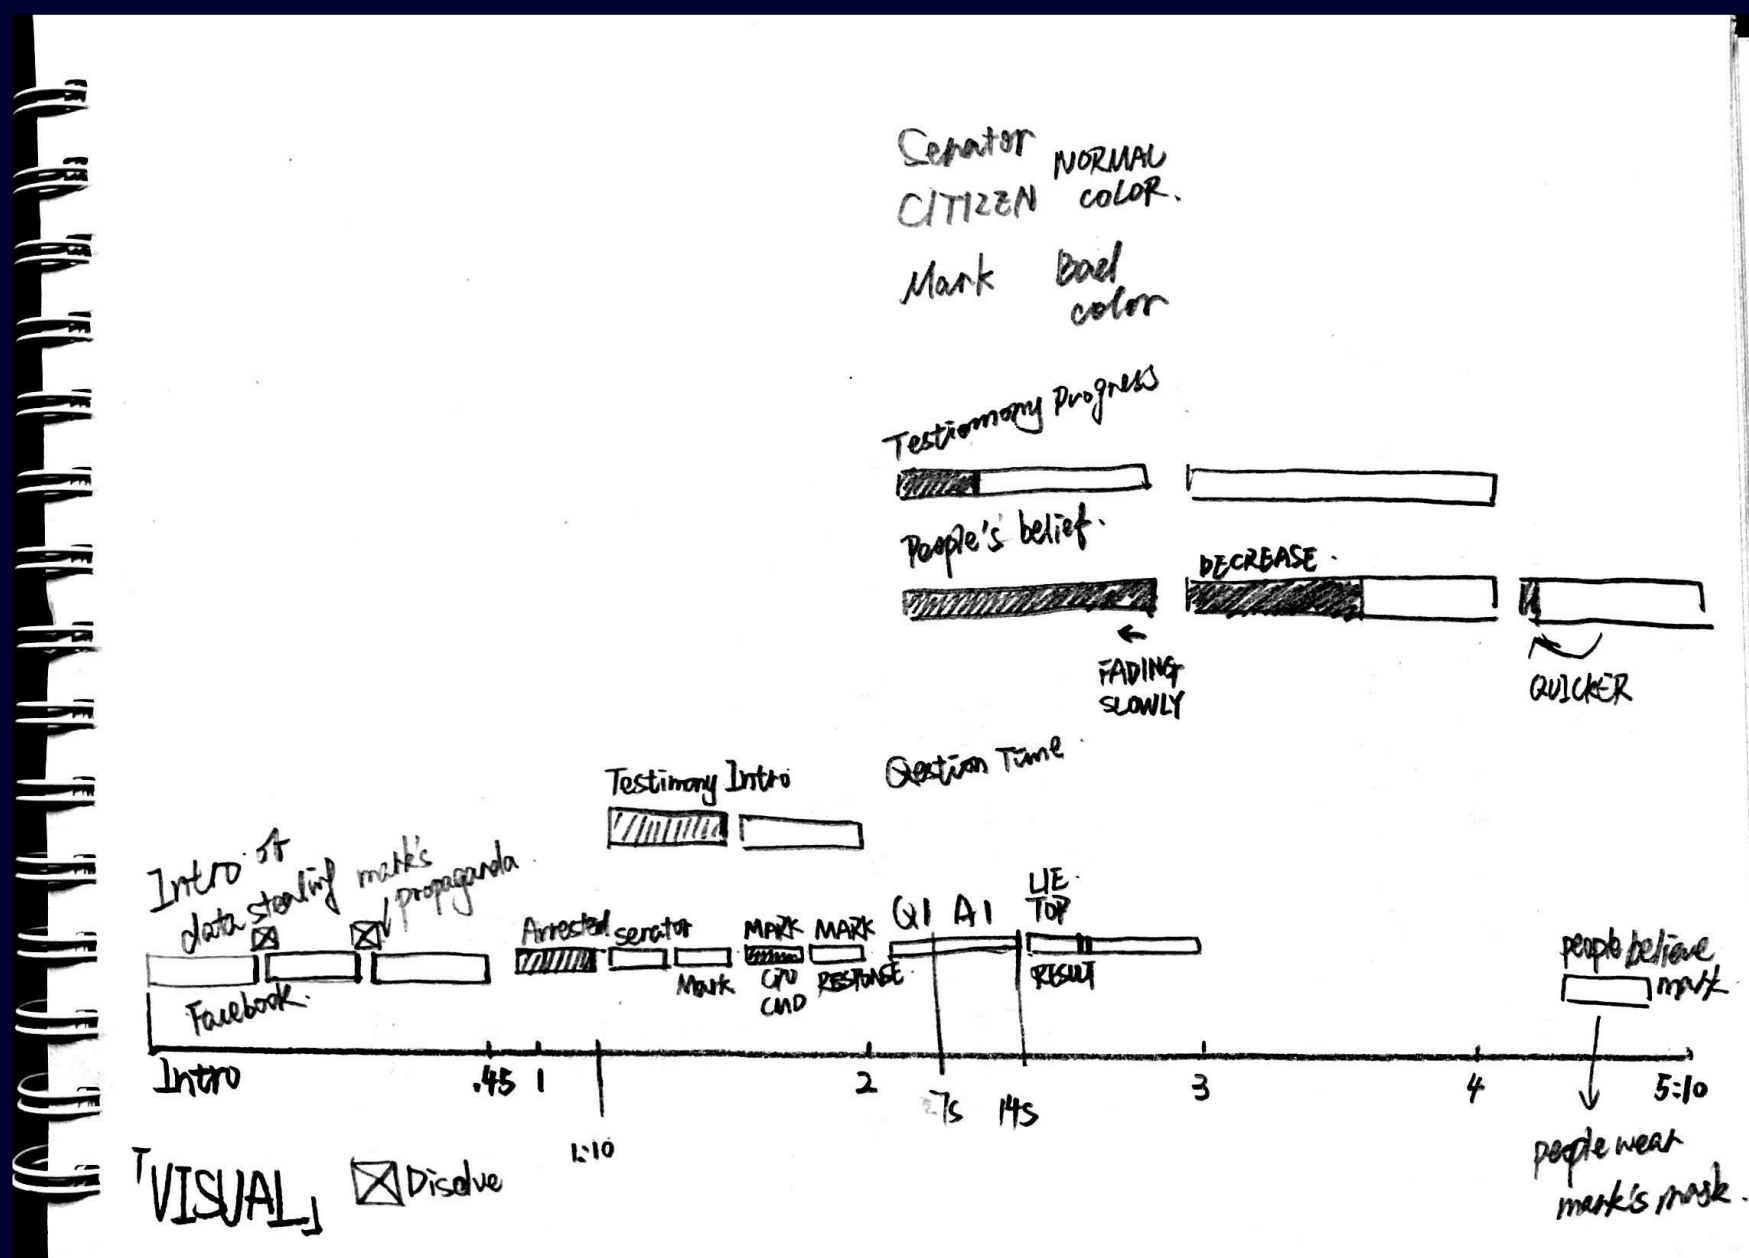 Senator
CITIZEN
NORMAL
COLOR.
Mark
Bad
color
Testiomony Progress
People's belief.
DECREASE.
FADING
SLOWLY
QUICKER
Testimony Intro
Question Time
Intro of
data stealing
mark's
propaganda
Facebook.
Arrested
senator
Mark
MARK
MARK
RESPONSE.
Q1 A1
LIE
TOP
RESULT
people believe
mark
Intro .45 1 1:10 2 7s 14s 3 4 5:10
people wear
mark's mask.
「VISUAL」
Disolve